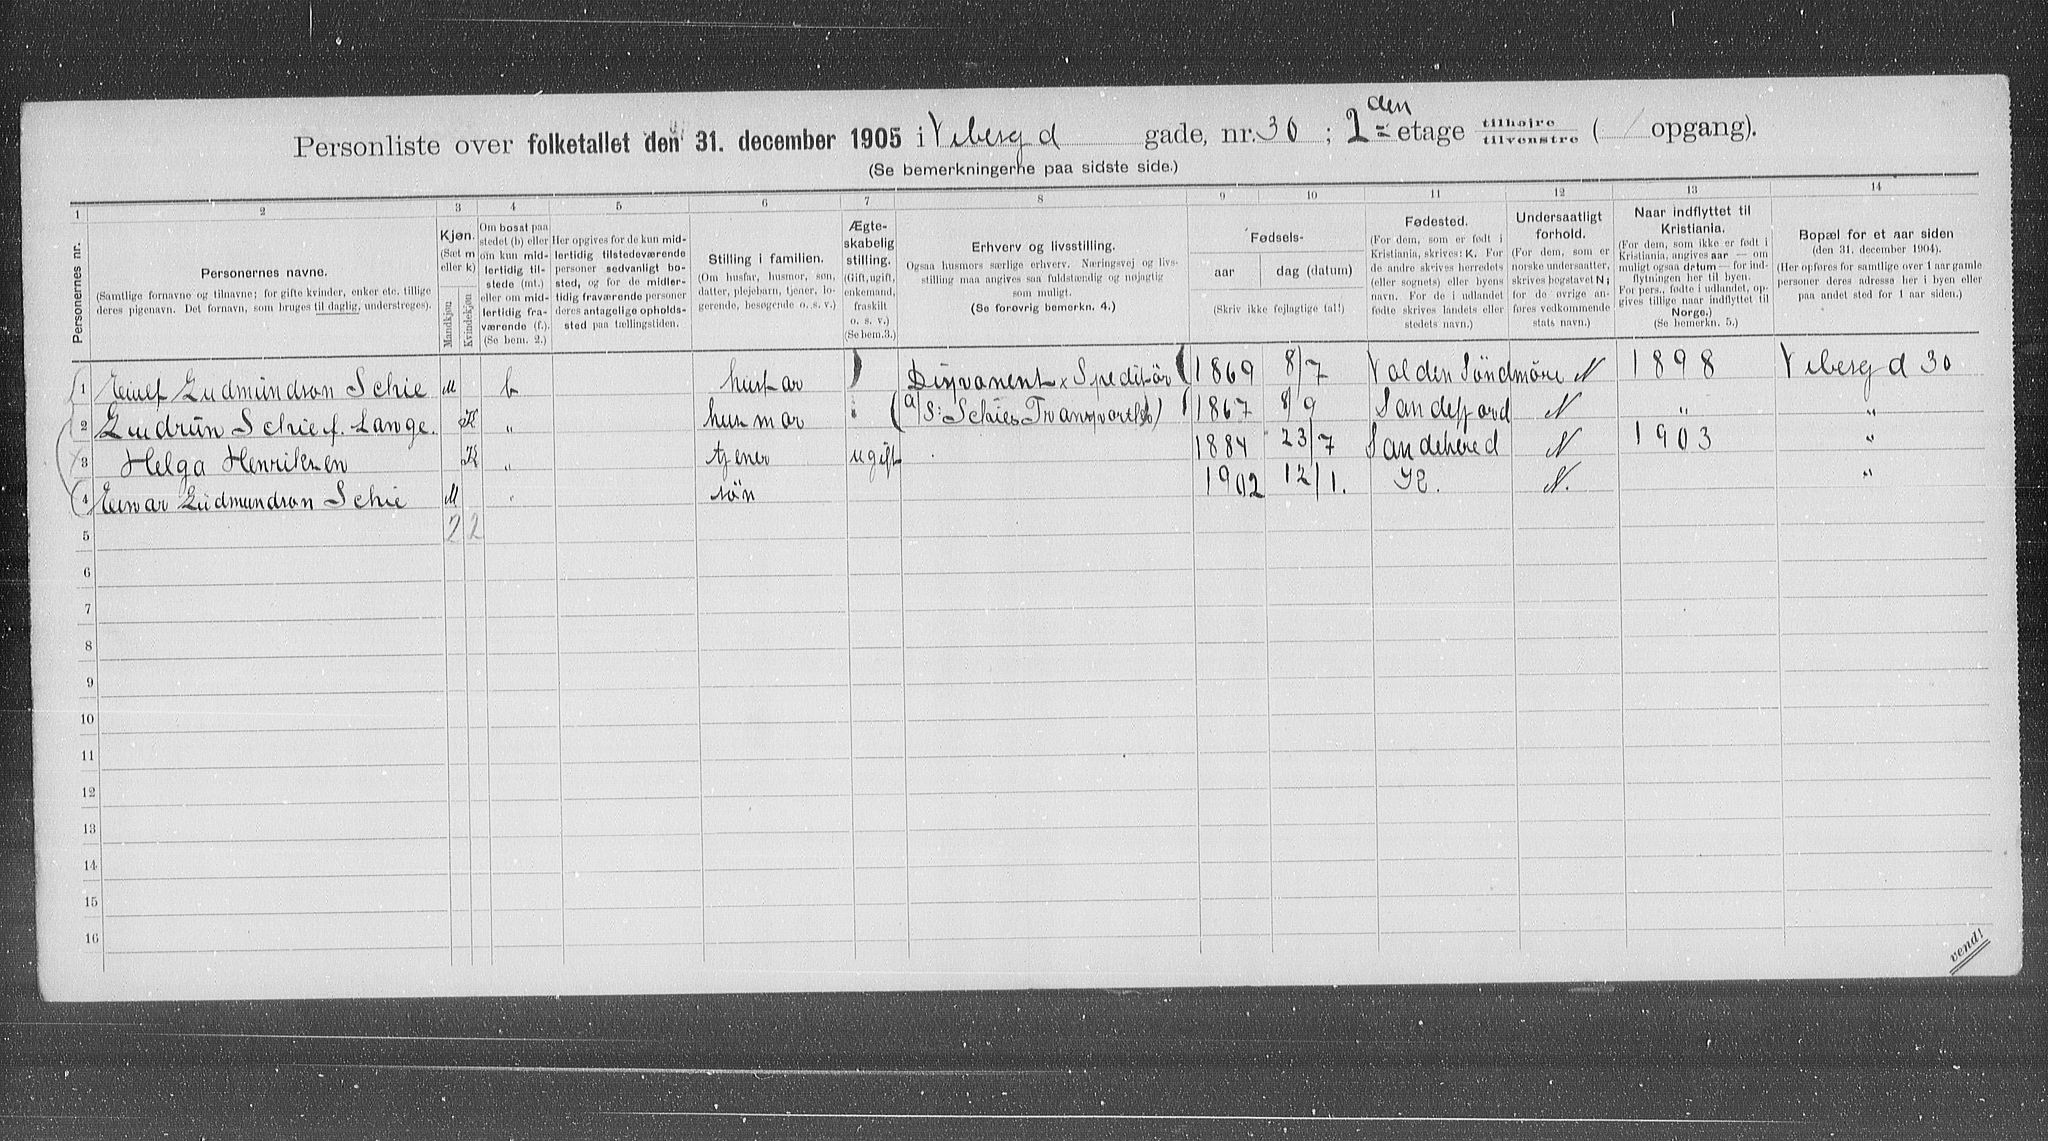 Personliste over folketallet den 31. december 1905 i Vibesgd gade, nr. 30 ; 2den etage tilhøjre tilvenstre ( / opgang).
(Se bemerkningerne paa sidste side.)
1 2 3 4 5 6 7 8 9 10 11 12 13 14
Personernes nr.
Personernes navne.
(Samtlige fornavne og tilnavne; for gifte kvinder, enker etc. tillige
deres pigenavn. Det fornavn, som bruges til daglig, understreges).
Kjøn.
(Sæt m
eller k)
Mandkjøn
Kvindekjøn
Om bosat paa
stedet (b) eller
om kun mid-
lertidig til-
stede (mt.)
eller om mid-
lertidig fra-
værende (f.).
(Se bem. 2.)
Her opgives for de kun mid-
lertidig tilstedeværende
personer sedvanligt bo-
sted, og for de midler-
tidig fraværende personer
deres antagelige opholds-
sted paa tællingstiden.
Stilling i familien.
(Om husfar, husmor, søn,
datter, plejebarn, tjener, lo-
gerende, besøgende o. s. v.)
Ægte-
skabelig
stilling.
(Gift, ugift,
enkemand,
fraskilt
o. s. v.)
(Se bem.3.)
Erhverv og livsstilling.
Ogsaa husmors særlige erhverv. Næringsvej og livs-
stilling maa angives saa fuldstændig og nøjagtig
som muligt.
(Se forøvrig bemerkn. 4.)
Fødsels-
aar
dag (datum)
(Skriv ikke fejlagtige tal!)
Fødested.
(For dem, som er født i
Kristiania, skrives: K. For
de andre skrives herredets
(eller sognets) eller byens
navn. For de i udlandet
fødte skrives landets eller
stedets navn.)
Undersaatligt
forhold.
(For dem, som er
norske undersaatter,
skrives bogstavet N;
for de øvrige an-
føres vedkommende
stats navn.)
Naar indflyttet til
Kristiania.
(For dem, som ikke er født i
Kristiania, angives aar — om
muligt ogsaa datum — for ind-
flytningen her til byen.
For pers., fødte i udlandet, op-
gives tillige naar indflyttet til
Norge.)
(Se bemerkn. 5.)
Bopæl for et aar siden
(den 31. december 1904).
(Her opføres for samtlige over 1 aar gamle
personer deres adresse her i byen eller
paa andet sted for 1 aar siden.)
1 Gudmundson Schie M b husfar Disponent & Speditør 1869 8/7 Volden Söndmöre N 1898 Vibesgd 30
2 Gudrun Schie f. Lange. K " husmor (A/S: Schies Transport) 1867 8/9 Sandefjord N " "
3 Helga Henriksen K " tjener ugift 1884 23/7 Sandehered N 1903 "
4 Einar Gudmundson Schie M " søn 1902 12/1. K. N. "
5 2 2
6
7
8
9
10
11
12
13
14
15
16
vend!